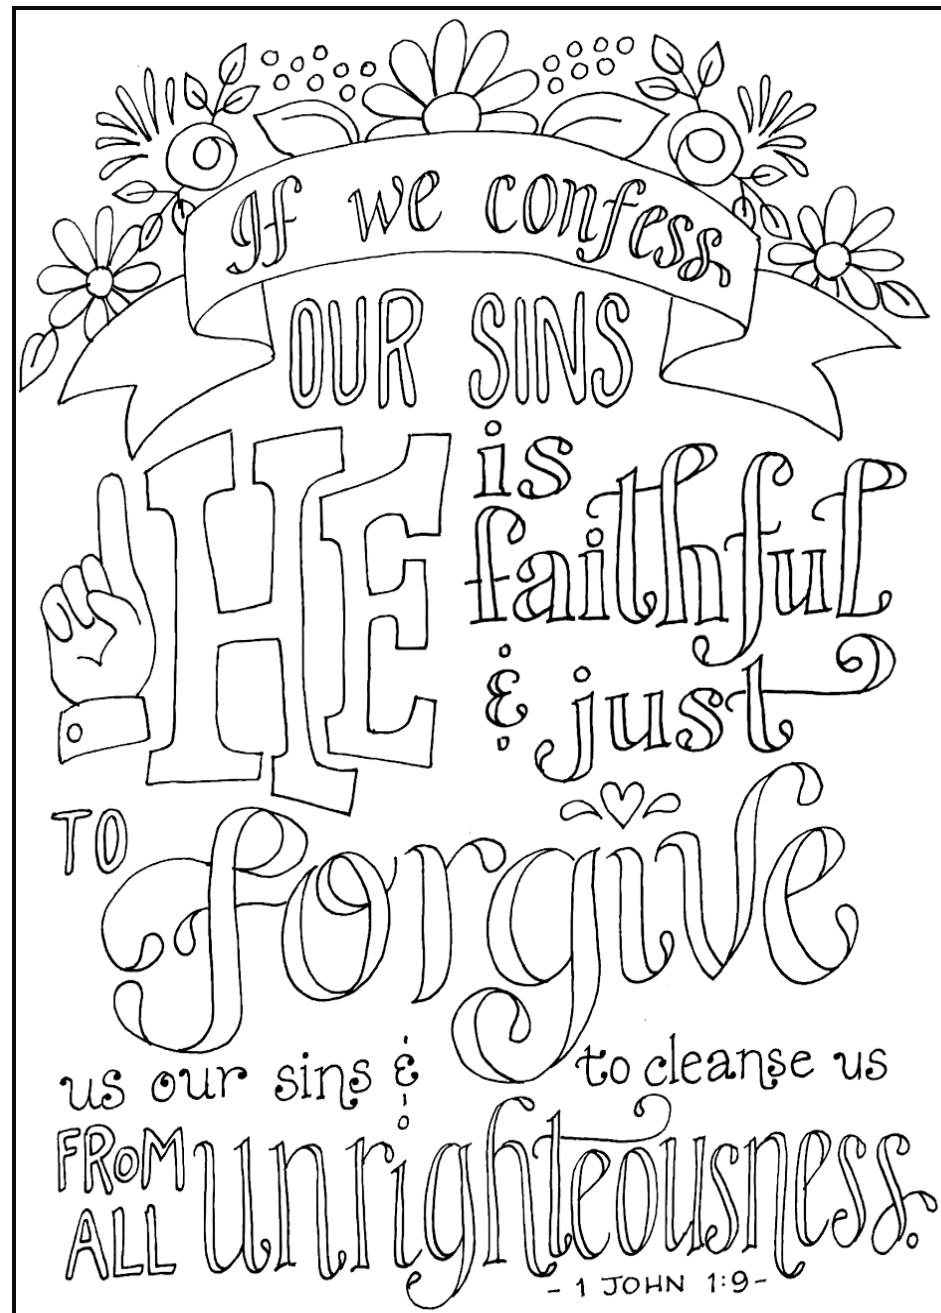 If we confess
OUR SINS
HE is
faithful
& just
TO forgive
us our sins & to cleanse us
FROM
ALL unrighteousness.
- 1 JOHN 1:9-